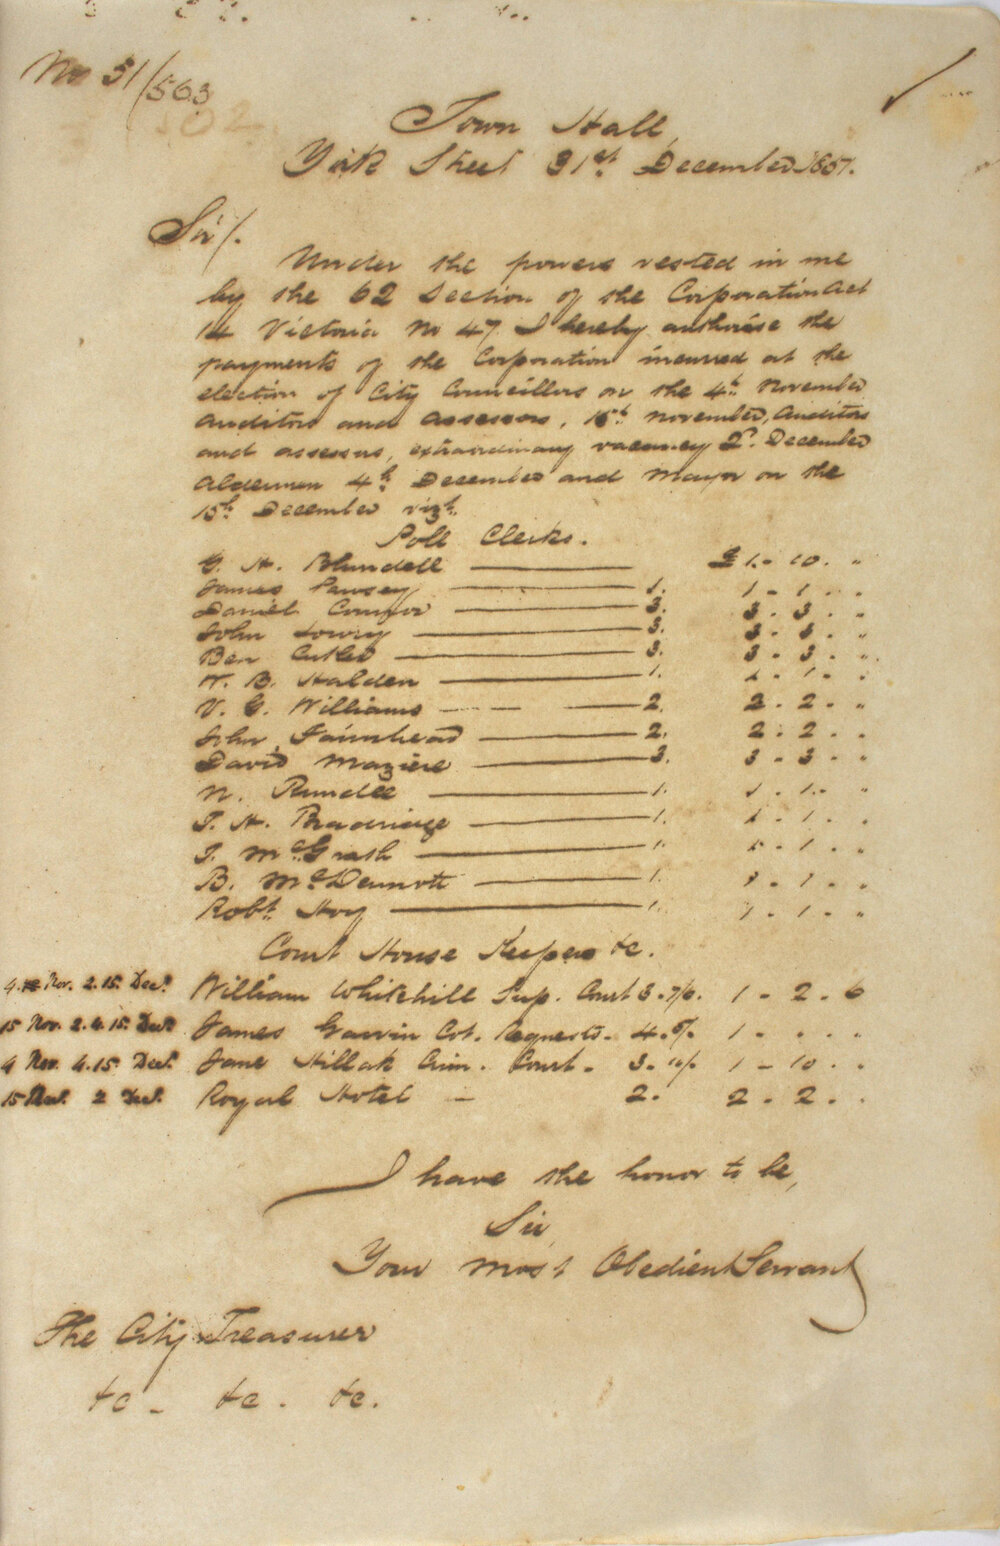 No 51/563
502
Town Hall,
York Street 31st December 1851.
Sir/.
Under the powers vested in me
by the 62 Section of the Corporation Act
14 Victoria No 47, I hereby authorise the
payments of the Corporation incurred at the
election of City Councillors on the 4th November
Auditors and Assessors, 15th November, Auditors
and assessors, extraordinary vacancy 2d. December
Aldermen 4th December and Mayor on the
15th December vizt.
Poll Clerks.
G. H. Blundell £ 1. - 10. "
James Pawsey 1. 1 - 1. "
Daniel Connor 3. 3 - 3. "
John Lowry 3. 3 - 3. "
Ben Cutler 3. 3 - 3. "
W. B. Halden 1. 1 - 1. "
V. G. Williams 2. 2 - 2. "
John Fairhead 2. 2 - 2. "
David Maziere 3. 3 - 3. "
N. Rundle 1. 1 - 1. "
T. H. Bradridge 1. 1 - 1. "
T. McGrath 1. 1 - 1. "
B. McDermott 1. 1 - 1. "
Robt. Hoy 1. 1 - 1. "
Court House Keepers &c.
4. Nov. 2. 15. Decr. William Whitehill Sup. Court 3. 7/6. 1 - 2 - 6
15 Nov. 2. 4. 15. Decr James Garvin Cot. Requests. 4. 5/. 1 - " "
4 Nov. 4. 15. Decr. Jane Hillak Crim. Court - 3. 10/. 1 - 10 "
15 2 Decr. Royal Hotel - 2. 2 - 2. "
I have the honor to be,
Sir,
Your most Obedient Servant
The City Treasurer
&c - &c. &c.